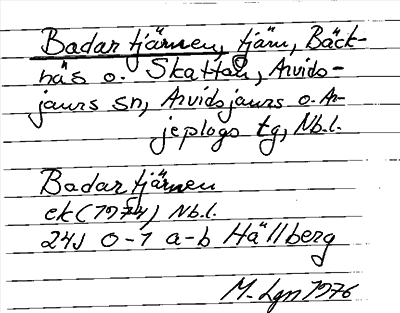 Badartjärnen, tjärn, Bäck-
näs o. Skatton, Arvids-
jaurs sn, Arvidsjaurs o. Ar-
jeplogs tg, Nb.l.
Badartjärnen
ek (1974) Nb.l.
24J 0-1 a-b Hällberg
M. Lgn 1976